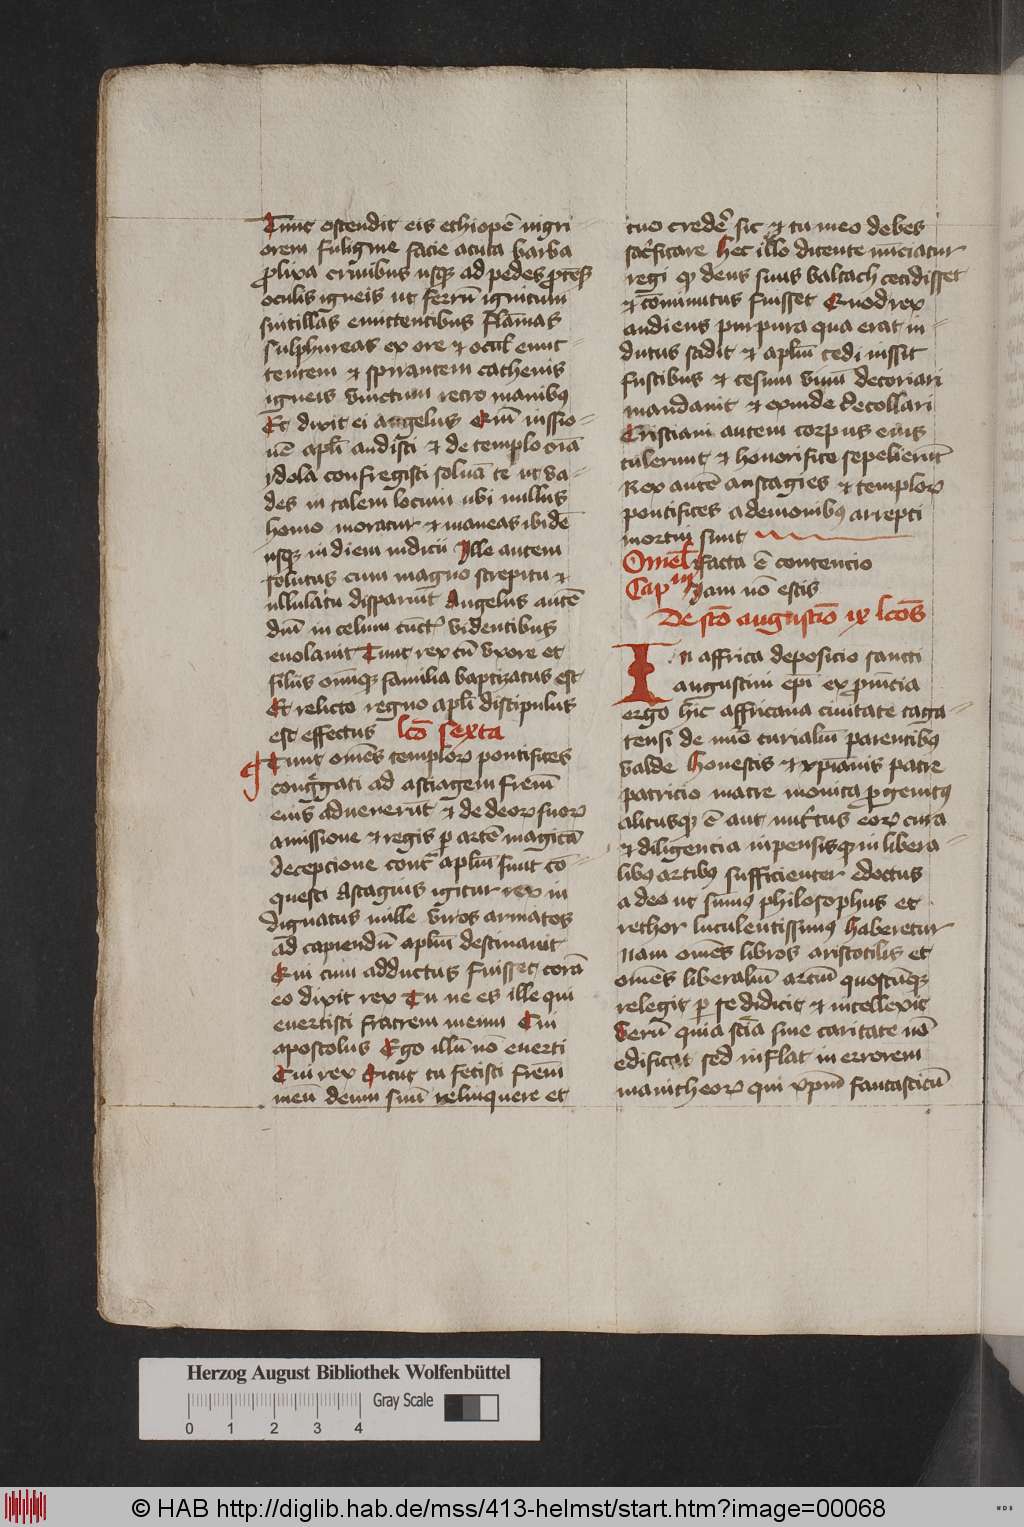 Tunc ostendit eis ethiopē nigri⸗
orem fuligine facie acuta barba
prolixa crinibus usqꝫ ad pedes protēs
oculis igneis ut ferrū ignitum
scintillas emittentibus flāmas
sulphureas ex ore et ocul' emit⸗
tentem et spirantem cathenis
igneis vinctum retro manibꝰ
Et dixit ei angelus Quī iussio⸗
nē apl'i audisti et de templo oīa
ydola confregisti soluā te ut va⸗
des in talem locum ubi nullus
homo moratur et maneas ibidē
usqꝫ in diem iudicii Ille autem
solutus cum magno strepitu et
ullulatu disparuit Angelus autē
dnī in celum cūctꝭ videntibus
euolauit Tunc rex cū vxore et
filiis omniqꝫ familia baptizatus est
Et relicto regno apl'i discipulus
est effectus lcō sexta
Tunc omēs templorꝝ pontifices
congregati ad astiagem frem̄
eius aduenerūt et de deorꝝ suorꝝ
amissione et regis p artē magicā
decepcione contra aplm̄ sunt co⸗
questi Astagius igitur rex in
dignatus mille viros armatos
ad capiendū aplm̄ destinauit
Qui cum adductus fuisset corā
eo dixit rex Tu ne es ille qui
euertisti fratrem meum Cui
apostolus Ego illū nō euerti
Cui rex Sicut tu fecisti frem̄
meū deum suū relinquere et
tuo credere sic et tu meo debes
sacrificare Hec illo dicente nunciatur
regi qꝫ deus suus baltach cecidisset
et cōminutus fuisset Quod rex
audiens purpura qua erat in⸗
dutus scidit et aplm̄ cedi iussit
fustibus et cesum viuū decoriari
mandauit et exinde decollari
Cristiani autem corpus eius
tulerunt et honorifice sepelierūt
Rex autē anstagies et templorꝝ
pontifices a demonibꝰ arrepti
mortui sunt
Omel' facta ē contencio
Capm̄ Iam nō estis
De scō augustīo ix lcōes
In affrica deposicio sancti
augustini epi ex prouīcia
ergo hīc affricana ciuitate taga⸗
tensi de nūo curialiū parentibꝰ
valde honestis et xpianis patre
patricio matre monica progenitꝰ
alitusqꝫ ē aut nutritus eorꝝ cura
et diligencia inpensisqꝫ in libera⸗
libꝰ artibꝰ sufficienter edoctus
adeo ut summꝰ philosophus et
rethor luculentissimꝰ haberetur
Nam omēs libros aristotilis et
omēs liberaliū artiū quoscūqꝫ
relegit p se didicit et intellexit
Verū quia scīa sine caritate nō
edificat sed inflat in errorem
manicheorꝝ qui xpm̄ fantasticū
Herzog August Bibliothek Wolfenbüttel
0 1 2 3 4 Gray Scale
© HAB http://diglib.hab.de/mss/413-helmst/start.htm?image=00068